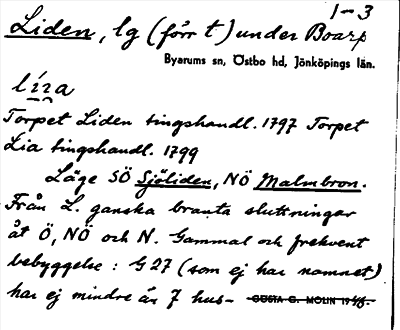 1-3
Liden, lg (förr t) under Boarp
Byarums sn, Östbo hd, Jönköpings län.
lı́ɪa
Torpet Liden tingshandl. 1797 Torpet
Lia tingshandl. 1799
Läge SÖ Sjöliden, NÖ Malmbron.
Från L. ganska branta sluttningar
åt Ö, NÖ och N. Gammal och frekvent
bebyggelse: G 27 (som ej har namnet)
har ej mindre än 7 hus- GÖSTA G. MOLIN 1946.